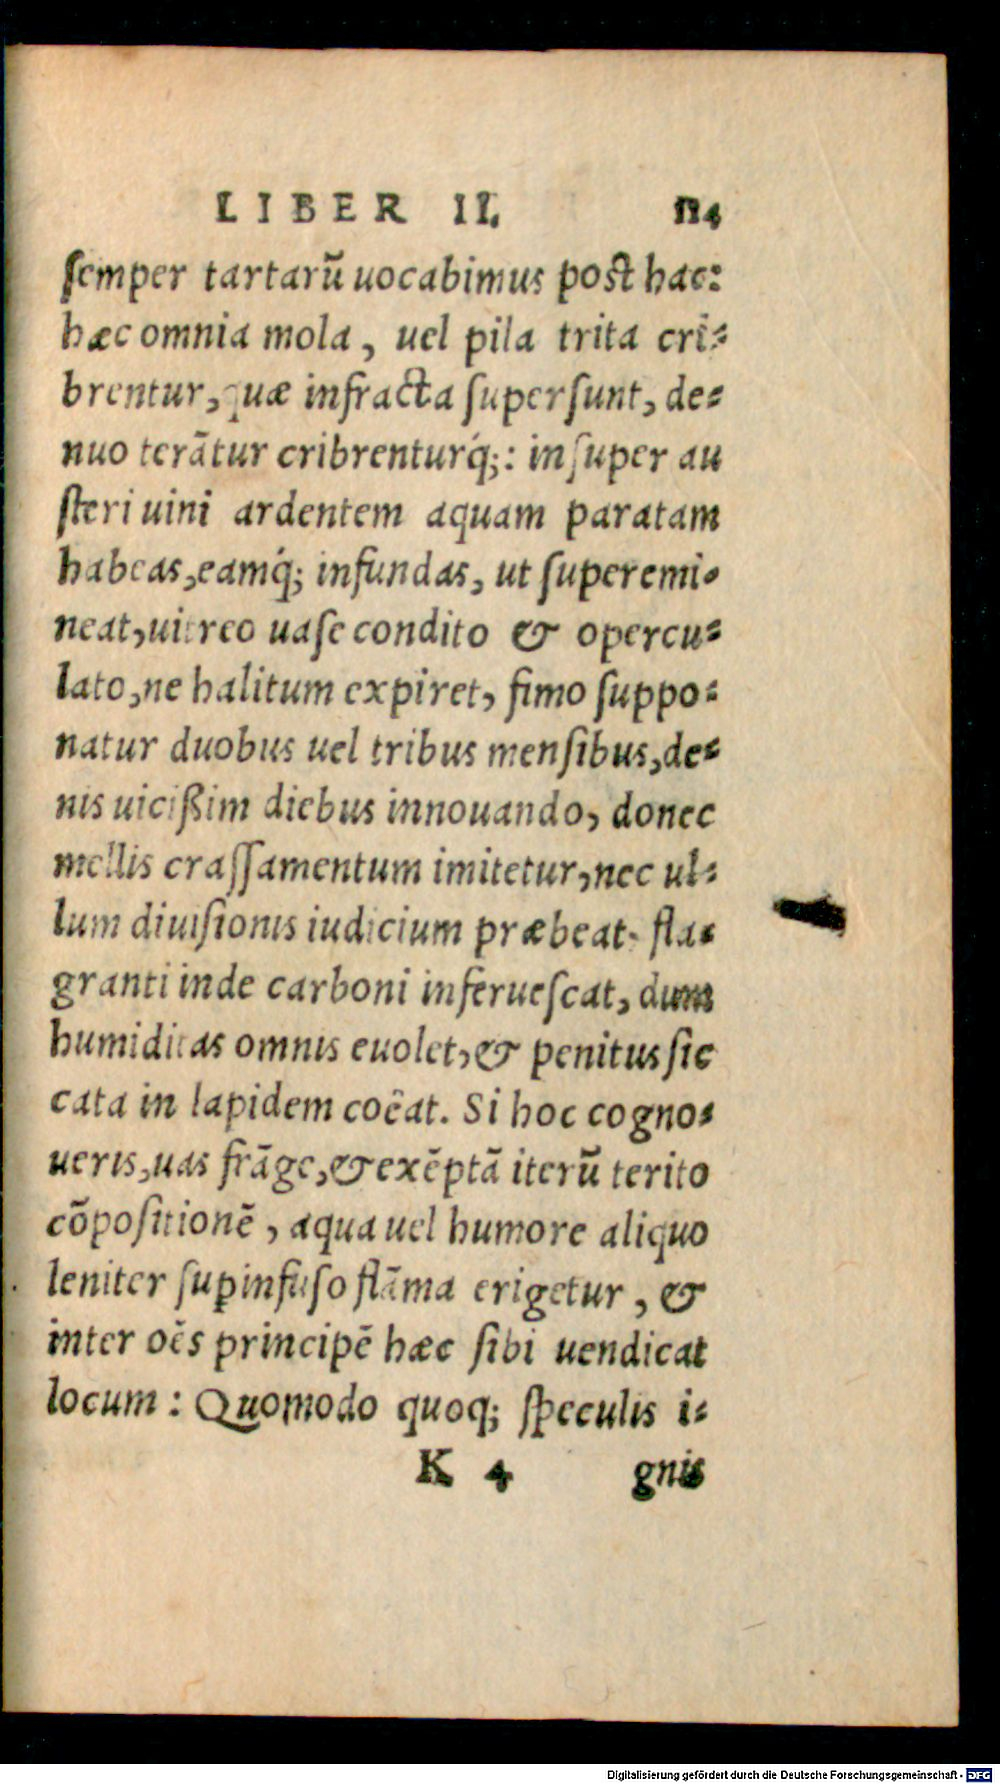 LIBER II. 114
semper tartarũ uocabimus post hac:
hæc omnia mola, uel pila trita cri⸗
brentur, quæ infracta supersunt, de⸗
nuo terãtur cribrenturq́;: insuper au
steri uini ardentem aquam paratam
habeas, eamq́; infundas, ut superemi⸗
neat, uitreo uase condito & opercu⸗
lato, ne halitum expiret, fimo suppo⸗
natur duobus uel tribus mensibus, de⸗
nis uicißim diebus innouando, donec
mellis crassamentum imitetur, nec ul⸗
lum diuisionis iudicium præbeat. fla⸗
granti inde carboni inferuescat, dum
humiditas omnis euolet, & penitus sic
cata in lapidem coẽat. Si hoc cogno⸗
ueris, uas frãge, & exẽptã iterũ terito
cõpositionẽ, aqua uel humore aliquo
leniter suꝑinfuso flãma erigetur, &
inter oẽs principẽ hæc sibi uendicat
locum: Quomodo quoq; speculis i⸗
K 4 gnis
Digitalisierung gefördert durch die Deutsche Forschungsgemeinschaft - DFG